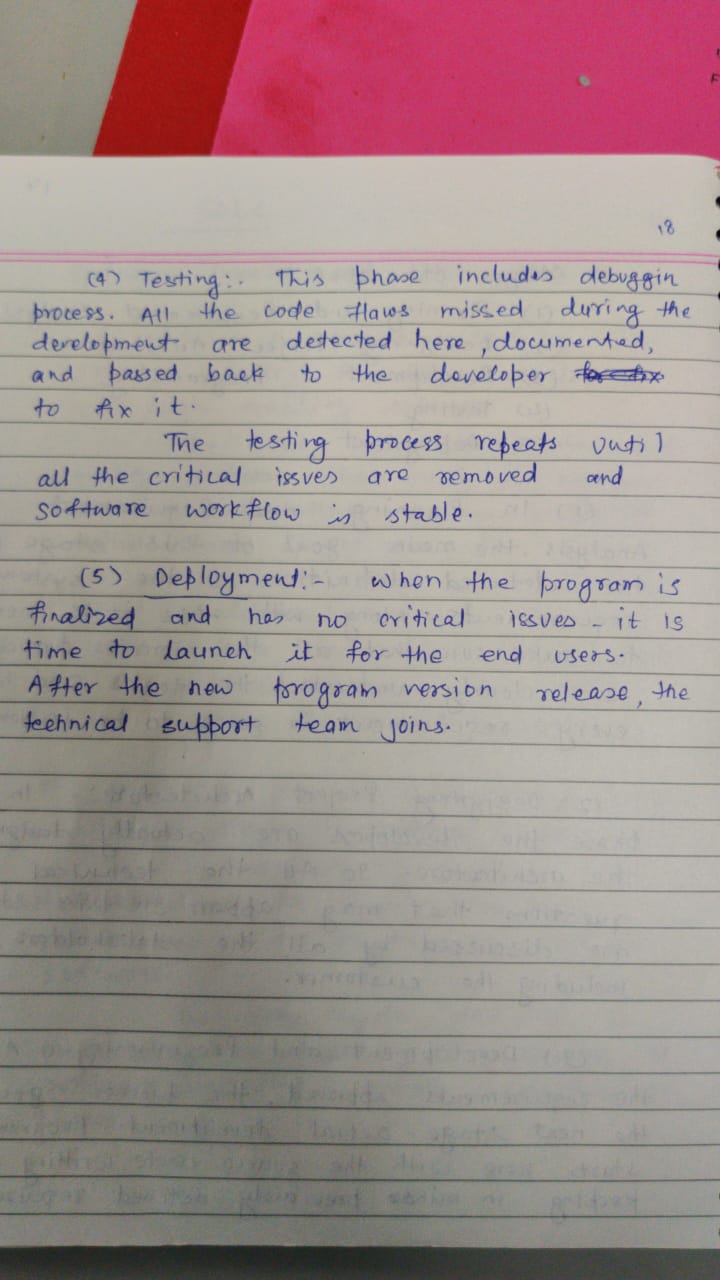 18
(4) Testing:- This phase includes debuggin
process. All the code flaws missed during the
development are detected here, documented,
and passed back to the developer for fix
to fix it.
The testing process repeats until
all the critical issues are removed and
software workflow is stable.
(5) Deployment:- When the program is
finalized and has no critical issues - it is
time to launch it for the end users.
After the new program version release, the
technical support team joins.